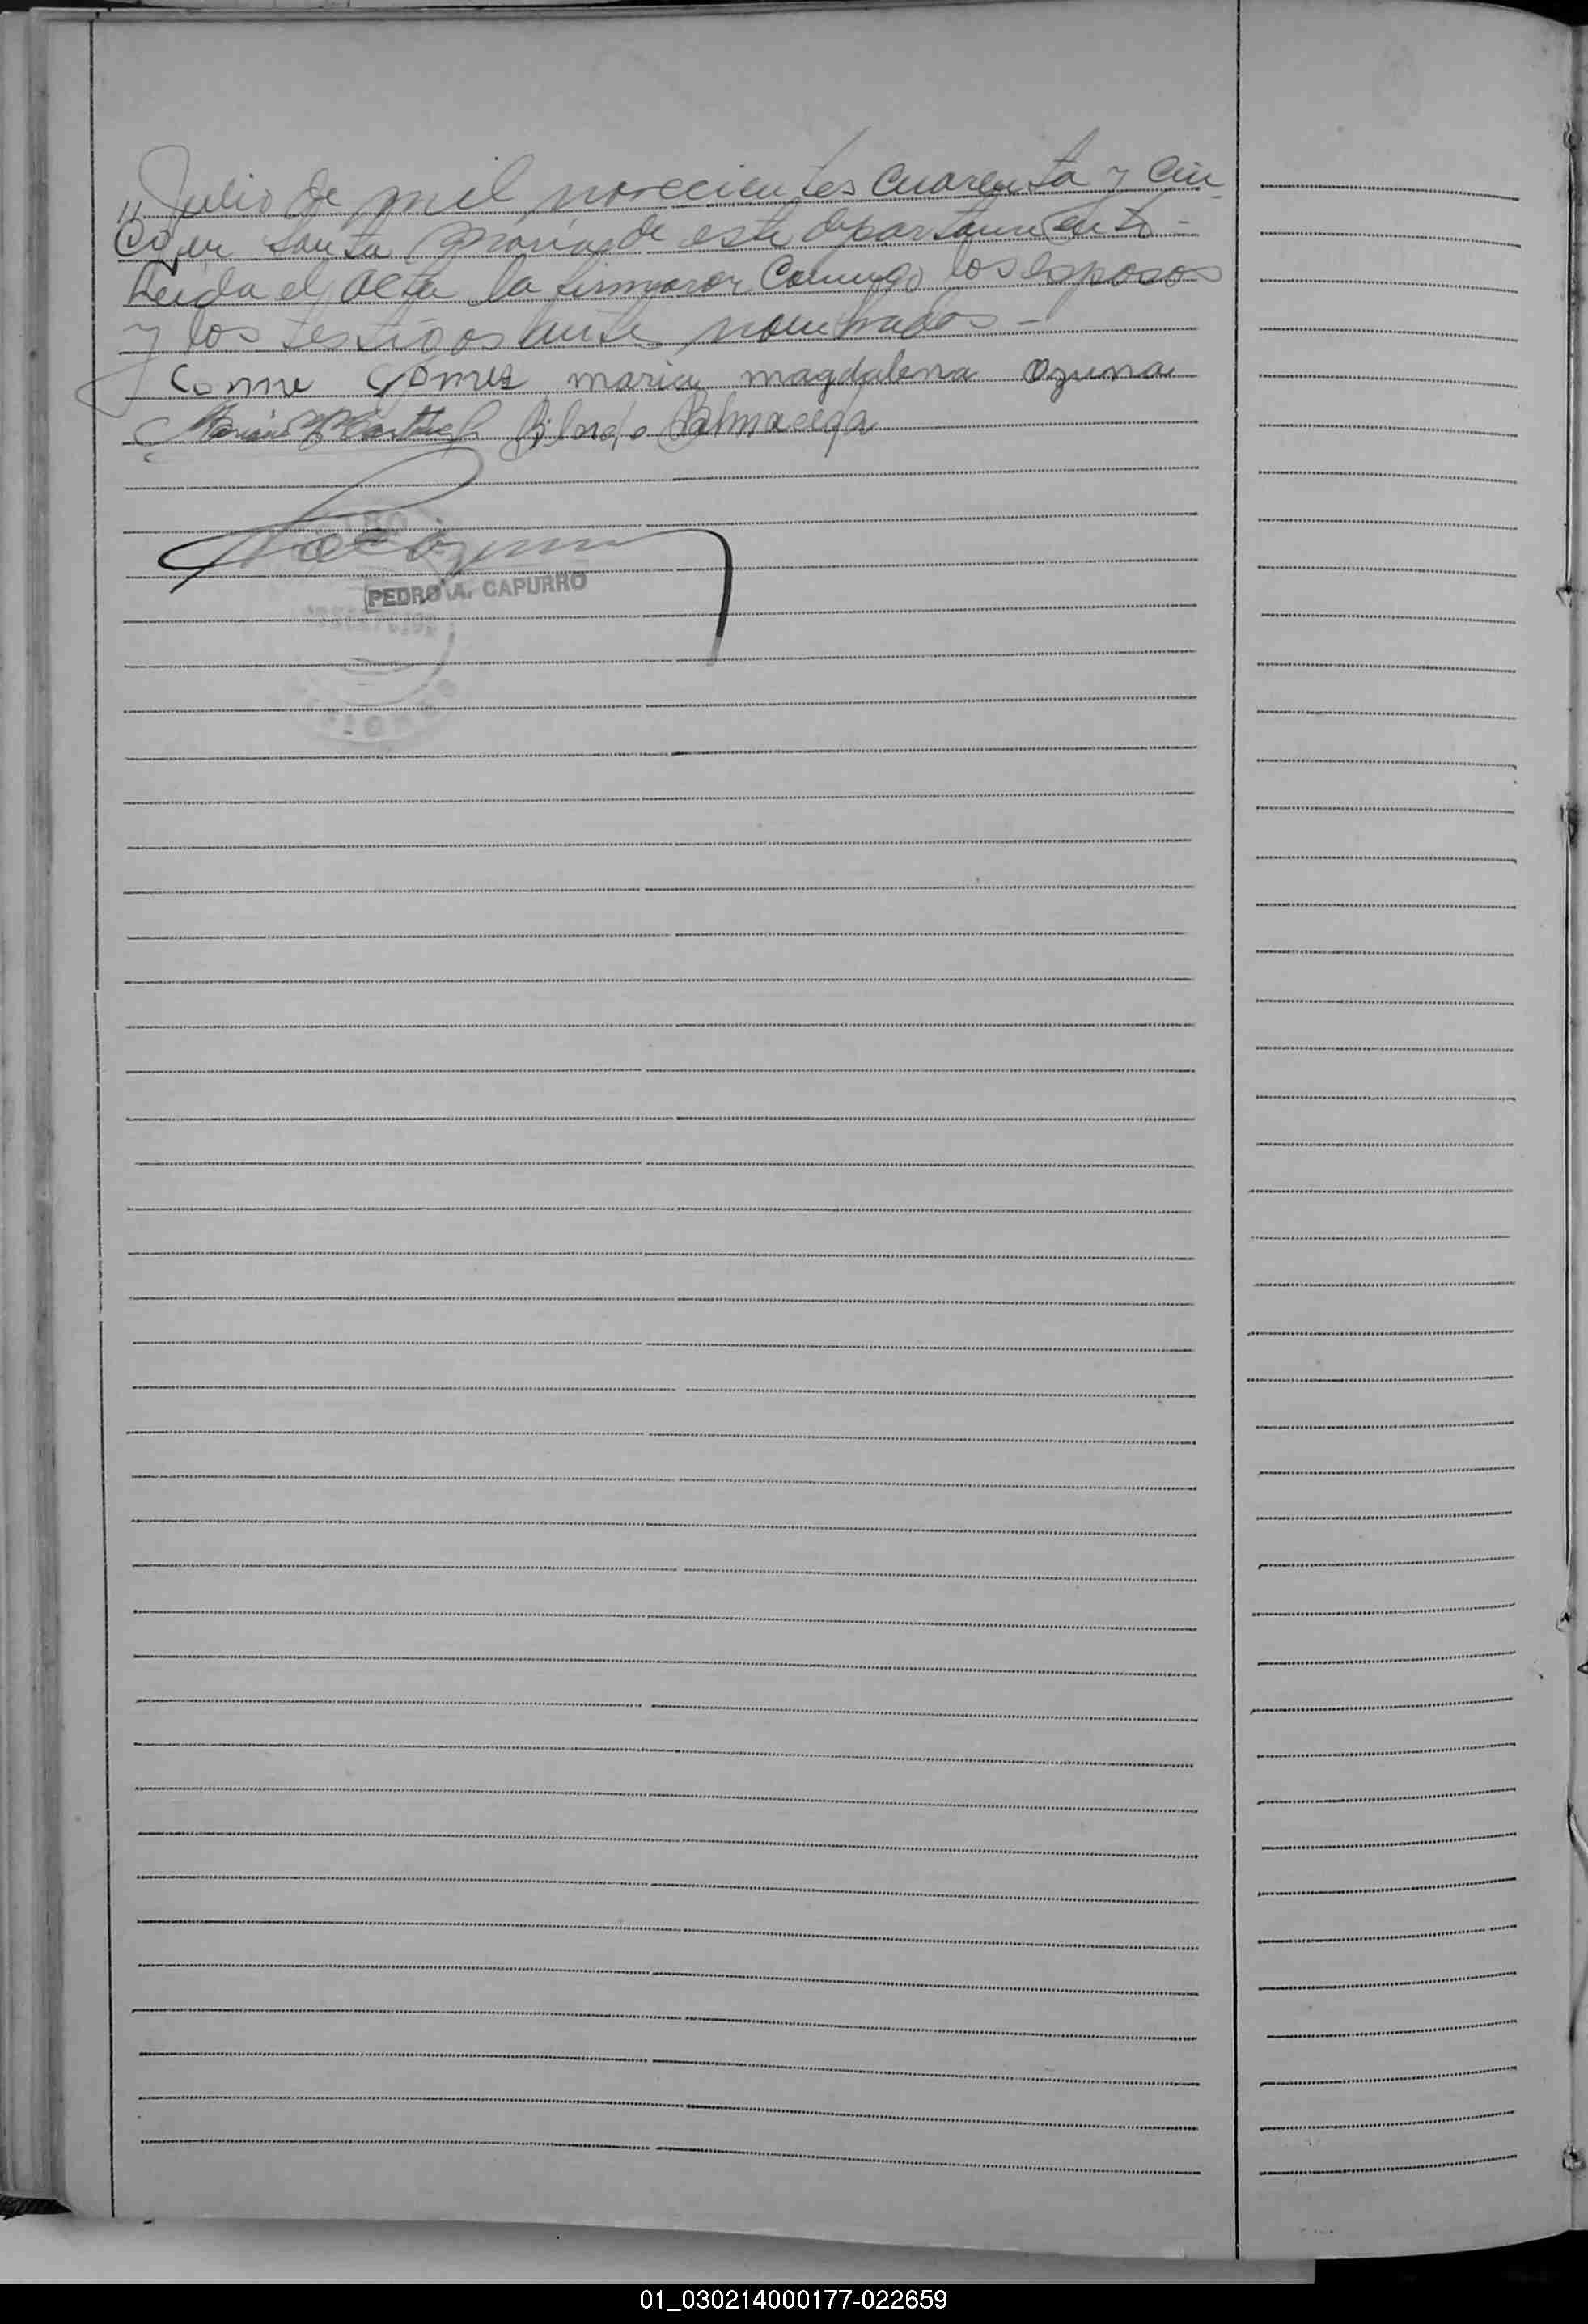 Julio de mil novecientos cuarenta y cin-
co en Santa María de este departamento -
Leida el acta la firmaron Conmigo los esposos
y los testigos antes nombrados -
Gomez maria magdalena Ozuna
Balmaceda
PEDRO A. CAPURRO
01_030214000177-022659